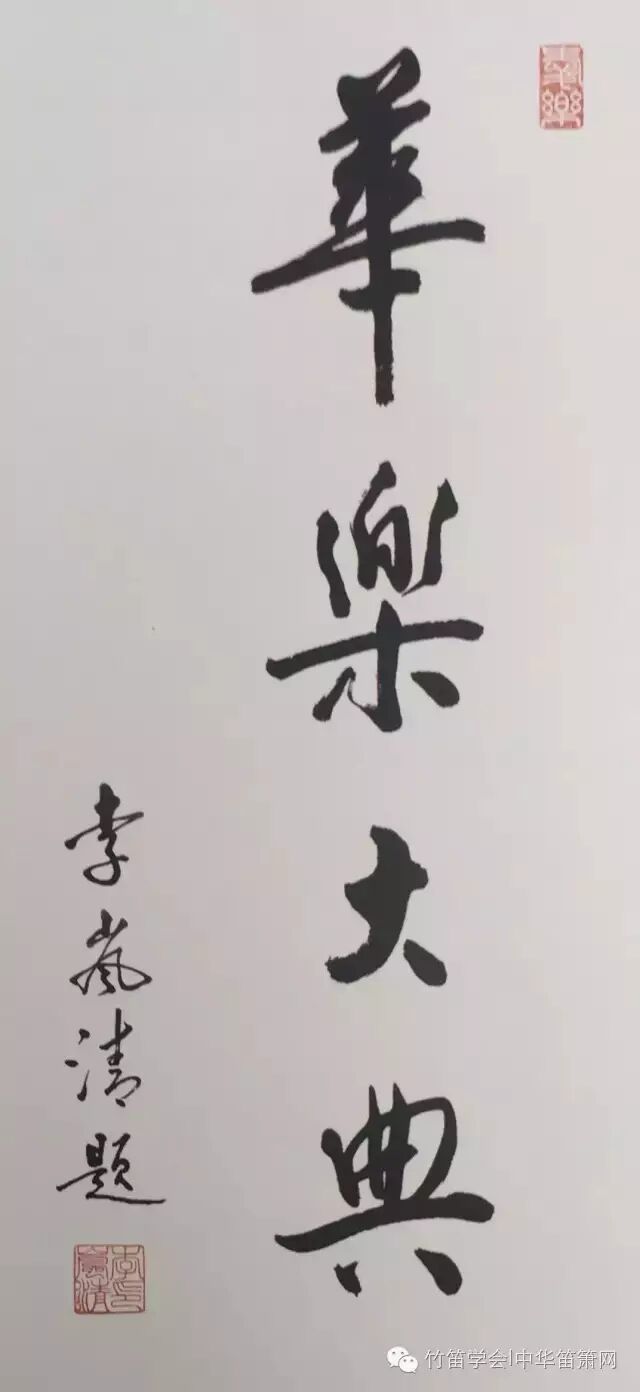 華樂大典
李嵐清题
竹笛学会|中华笛箫网